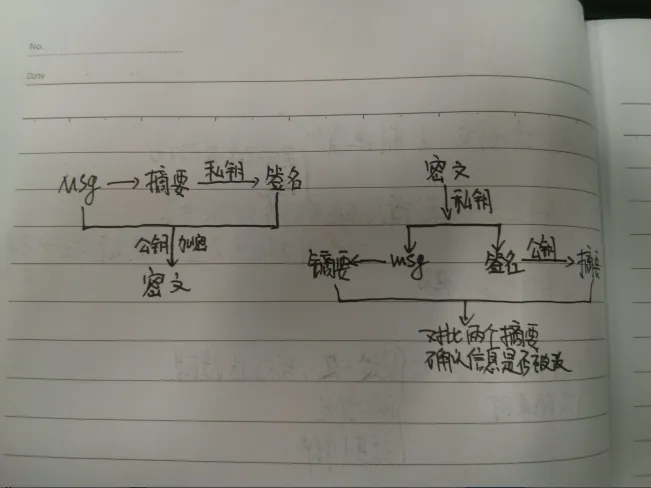 No.
Date
msg → 摘要 私钥 → 签名
公钥 加密
密文
密文
私钥
摘要 ← msg 签名 公钥 → 摘要
对比两个摘要
确认信息是否被改